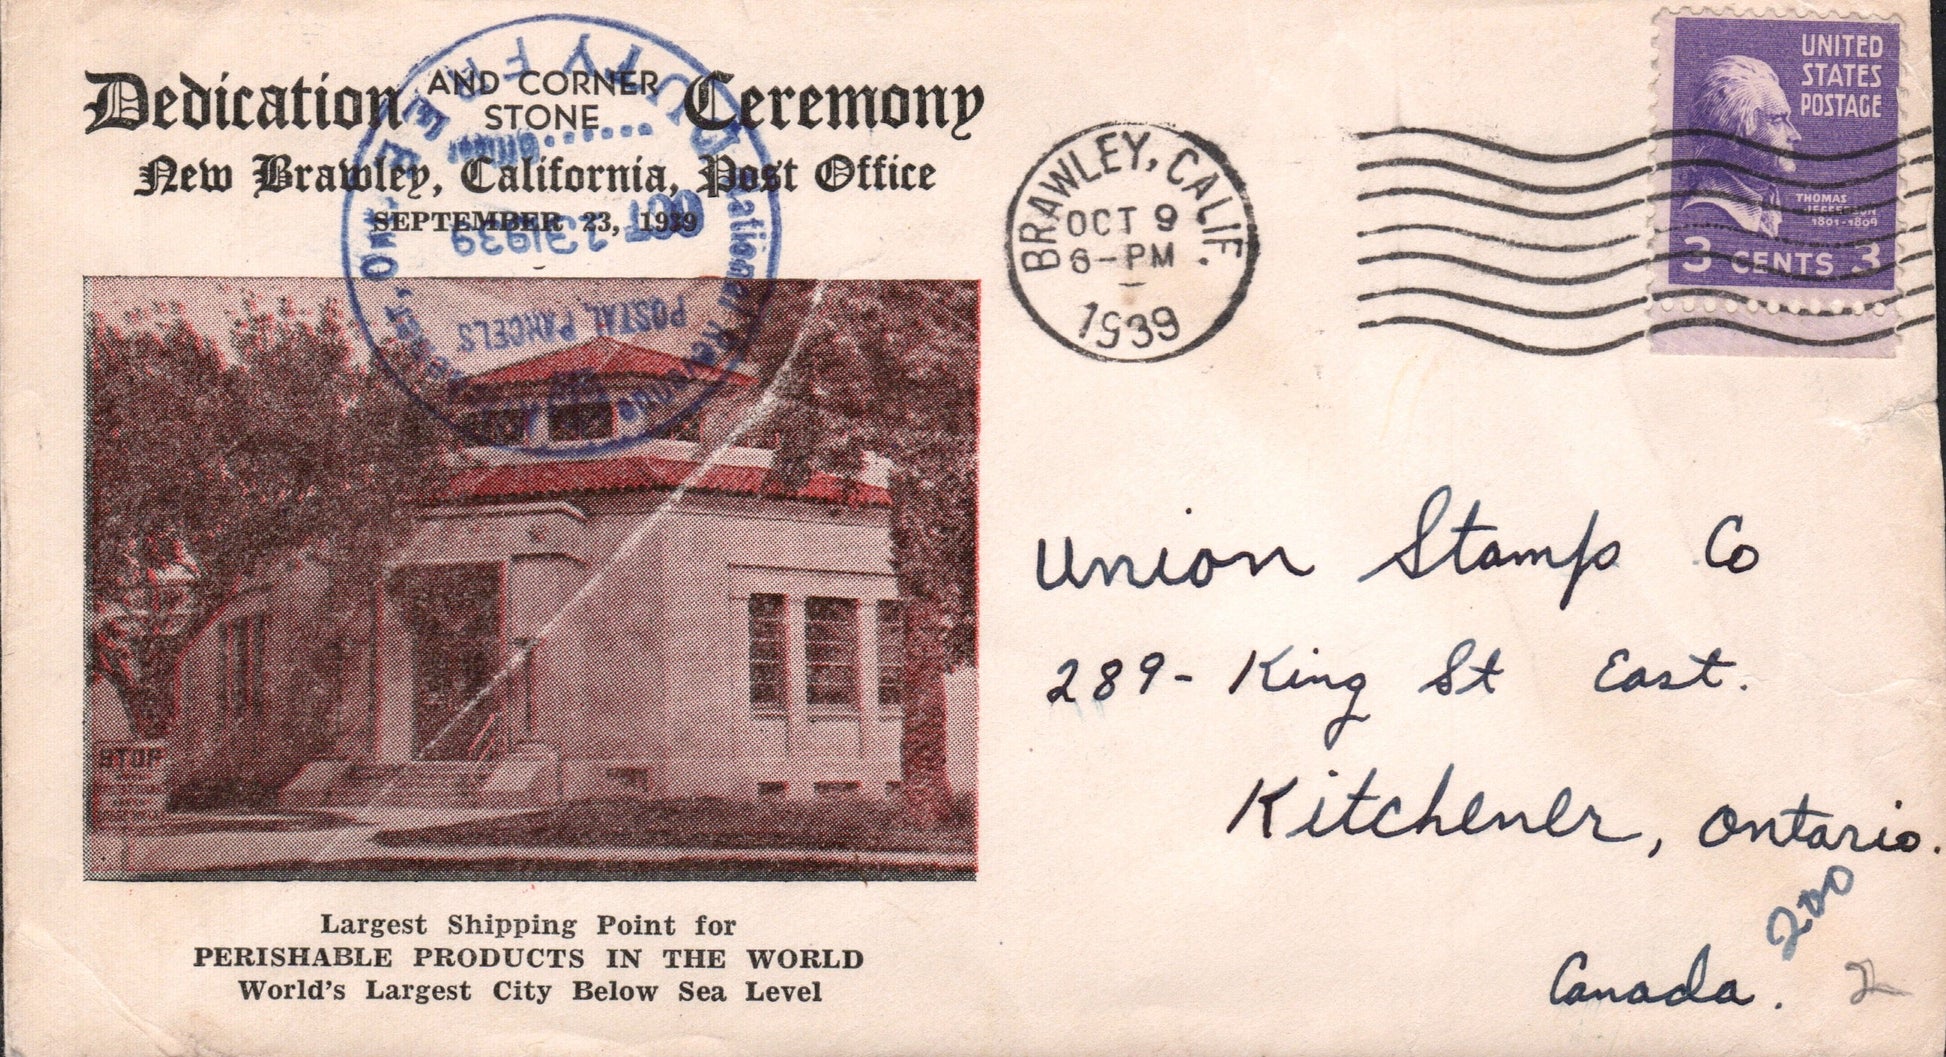 Dedication AND CORNER STONE Ceremony
New Brawley, California, Post Office
SEPTEMBER 23, 1939
DUTY FREE
National Revenue
OCT 13 1939
POSTAL PARCELS
BRAWLEY, CALIF.
OCT 9
6-PM
1939
UNITED
STATES
POSTAGE
THOMAS
JEFFERSON
1801-1809
3 CENTS 3
Union Stamp Co
289- King St East.
Kitchener, Ontario.
Canada.
200
2
STOP
Largest Shipping Point for
PERISHABLE PRODUCTS IN THE WORLD
World's Largest City Below Sea Level